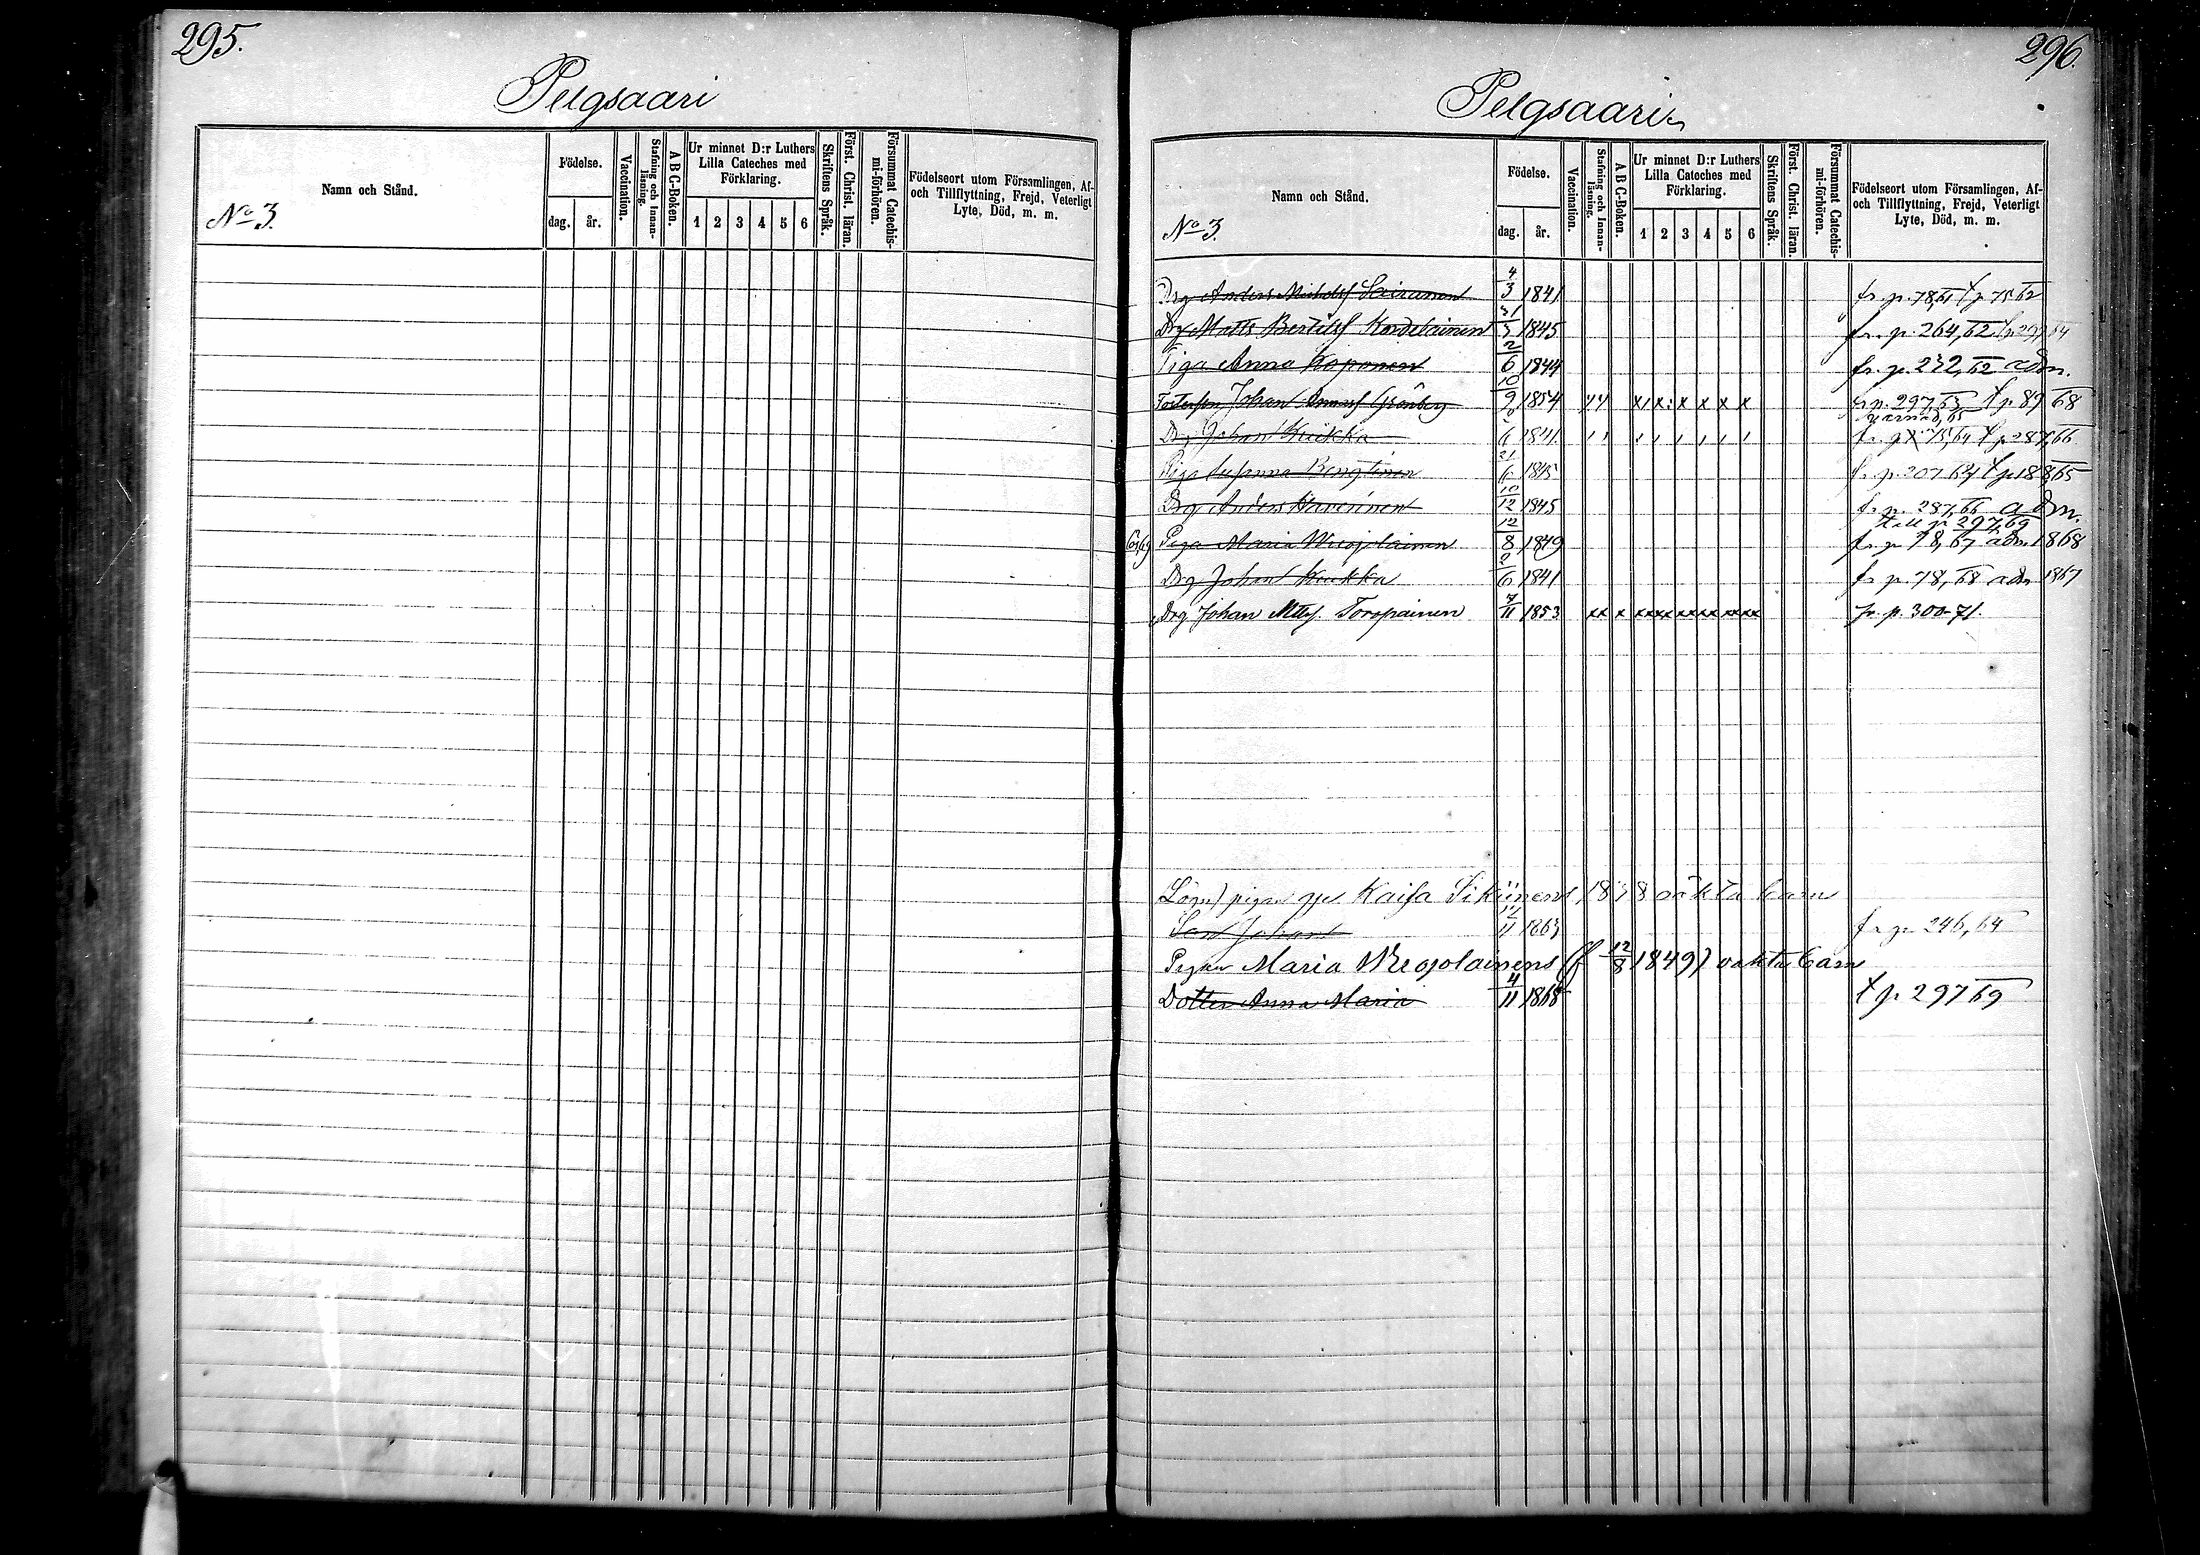 295.
Pelgsaari
Namn och Stånd.
No 3.
Födelse.
dag. år.
Vaccination.
Stafning och Innanläsning.
A B C-Boken.
Ur minnet D:r Luthers
Lilla Cateches med
Förklaring.
1 2 3 4 5 6
Skriftens Språk.
Först. Christ. läran.
Försummat Catechismi-förhören.
Födelseort utom Församlingen, Af-
och Tillflyttning, Frejd, Veterligt
Lyte, Död, m. m.
296.
Pelgsaari
Namn och Stånd.
No 3.
Födelse.
dag. år.
Vaccination.
Stafning och Innanläsning.
A B C-Boken.
Ur minnet D:r Luthers
Lilla Cateches med
Förklaring.
1 2 3 4 5 6
Skriftens Språk.
Först. Christ. läran.
Försummat Catechismi-förhören.
Födelseort utom Församlingen, Af-
och Tillflyttning, Frejd, Veterligt
Lyte, Död, m. m.
Drg Anders Sairanen 4/3 1841 fr. p. 78,61 t p 75 62
Drg Matts Bertilsf 31/3 1845 fr. p. 264,62
Piga Anna Koponen 2/6 1844 fr. p. 232,62 adm.
Johan Grönberg 10/9 1854 x x x x x x fr. p. 297,63 t p 89 68
Drg Johan Kuikka 2/6 1841 t p 287,66
Piga Susanna 21/6 1845 fr. p. 207 64 t p 188,65
Drg Anders 10/12 1845 fr. p. 287,66 adm.
t p 297,69
Piga Maria 12/8 1849 fr. p. 78,67 adm 1868
Drg Johan Kuikka 2/6 1841 fr p. 78,68 adm 1867
Drg Johan Mtts. Toropainen 7/11 1853 xx x xx xx xx xx xx xx fr. p. 300-71.
pigan Kaisa oäkta barn
Son Johan 11 1863 fr. p. 246,64
Pigan Maria (f 12/8 1849) oäkta barn
Dotter Anna Maria 4/11 1868 t p 297 69